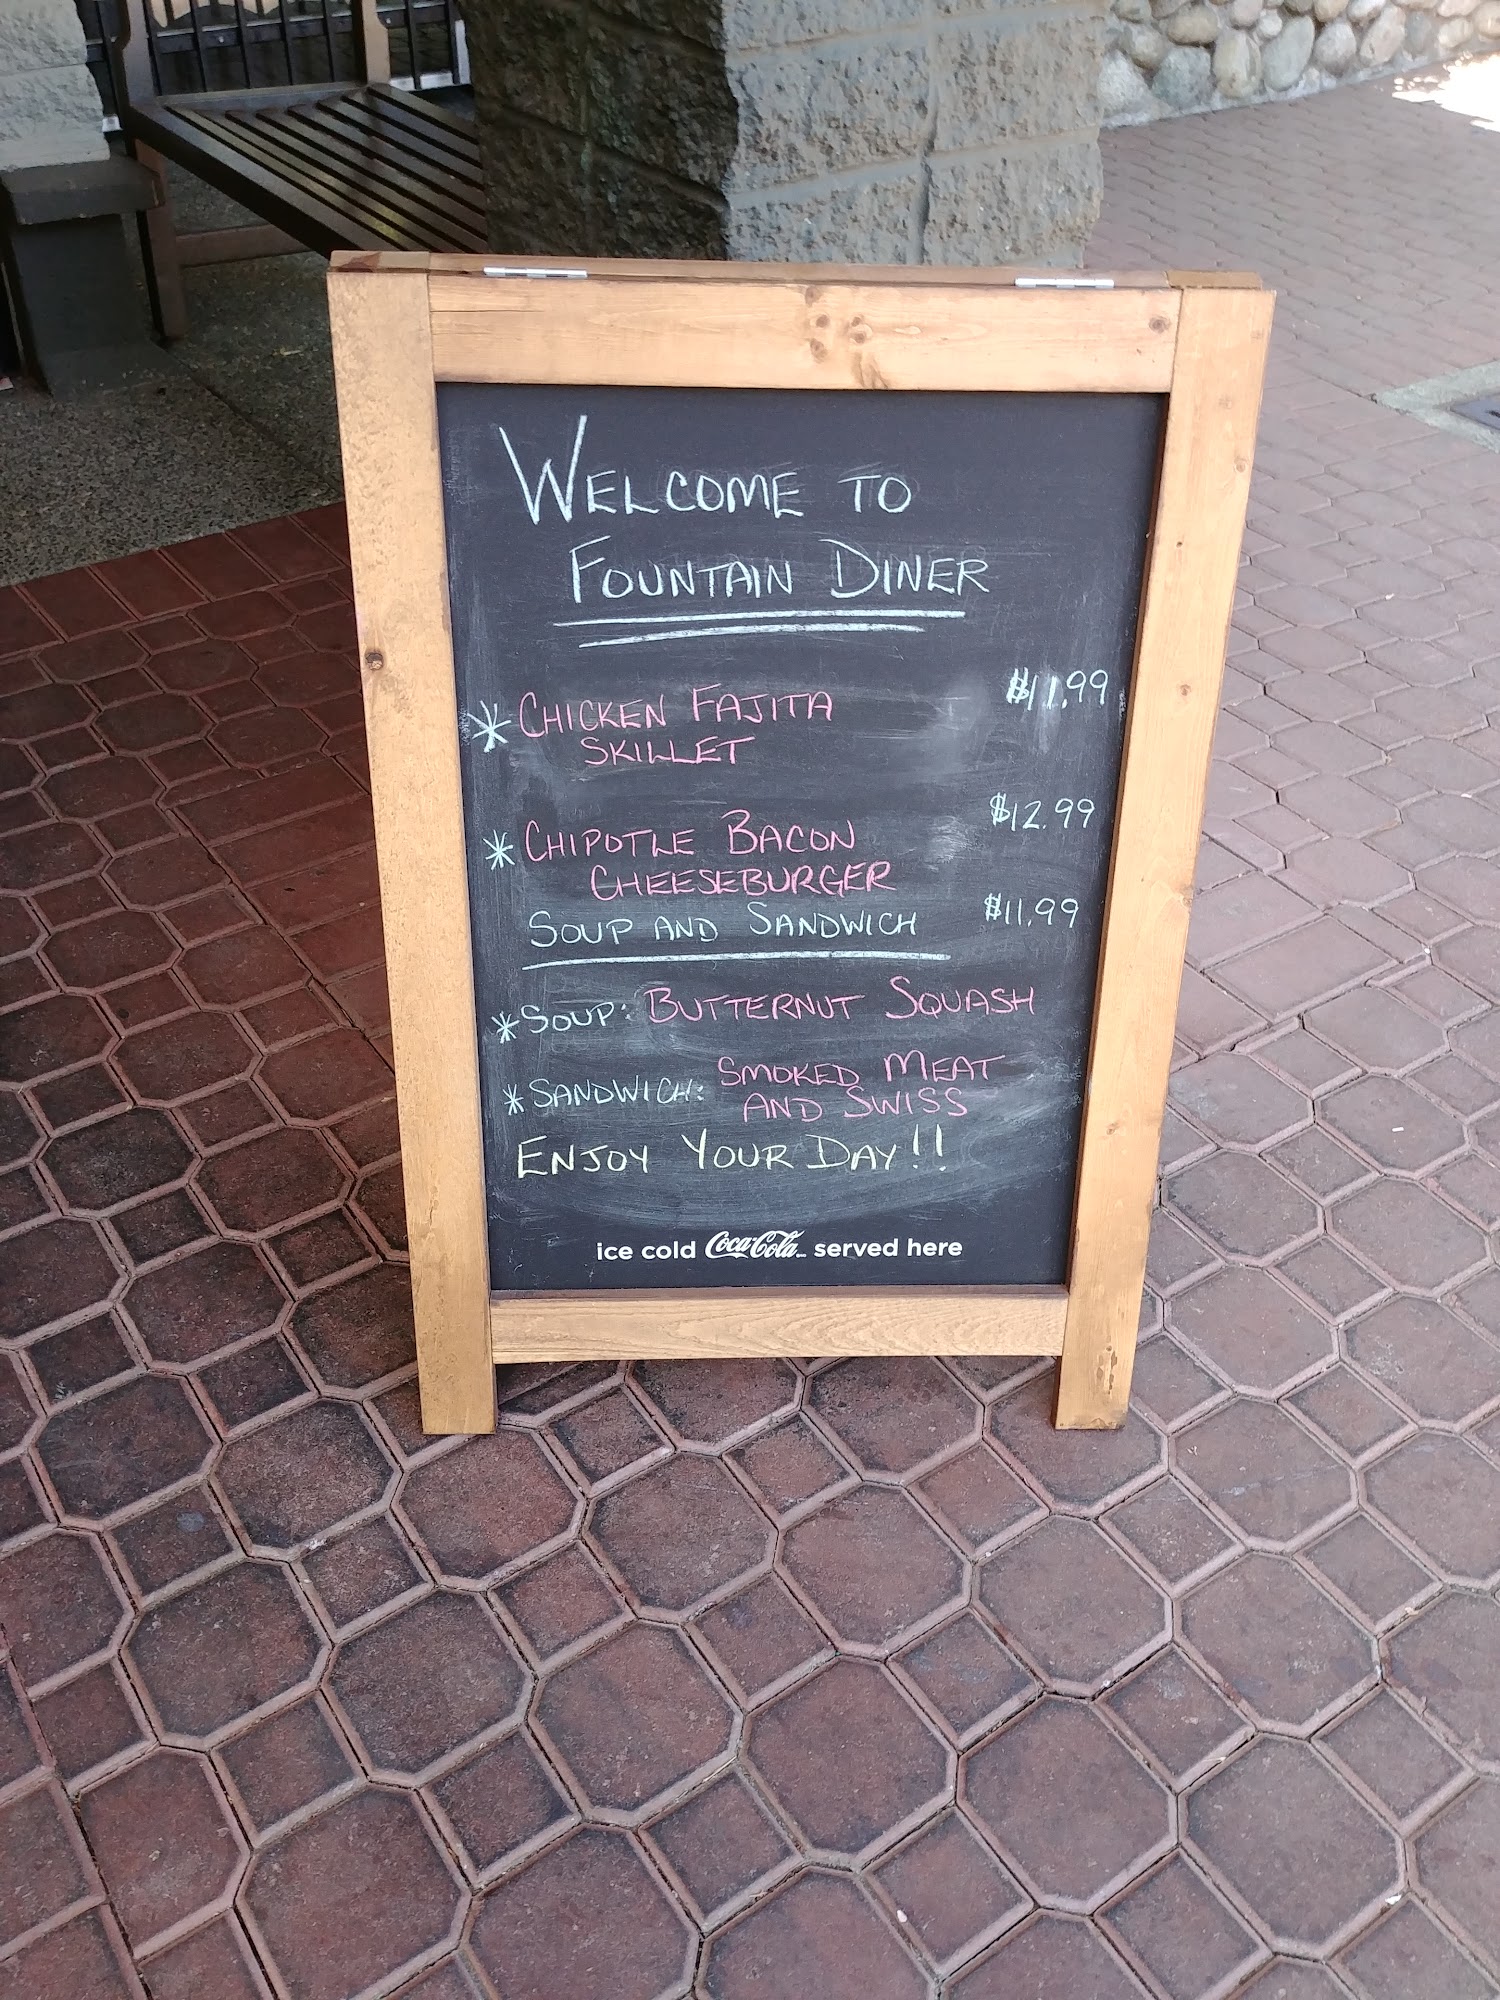 WELCOME TO
FOUNTAIN DINER
* CHICKEN FAJITA $11.99
SKILLET
* CHIPOTLE BACON $12.99
CHEESEBURGER
SOUP AND SANDWICH $11.99
* SOUP: BUTTERNUT SQUASH
* SANDWICH: SMOKED MEAT
AND SWISS
ENJOY YOUR DAY!!
ice cold Coca-Cola served here